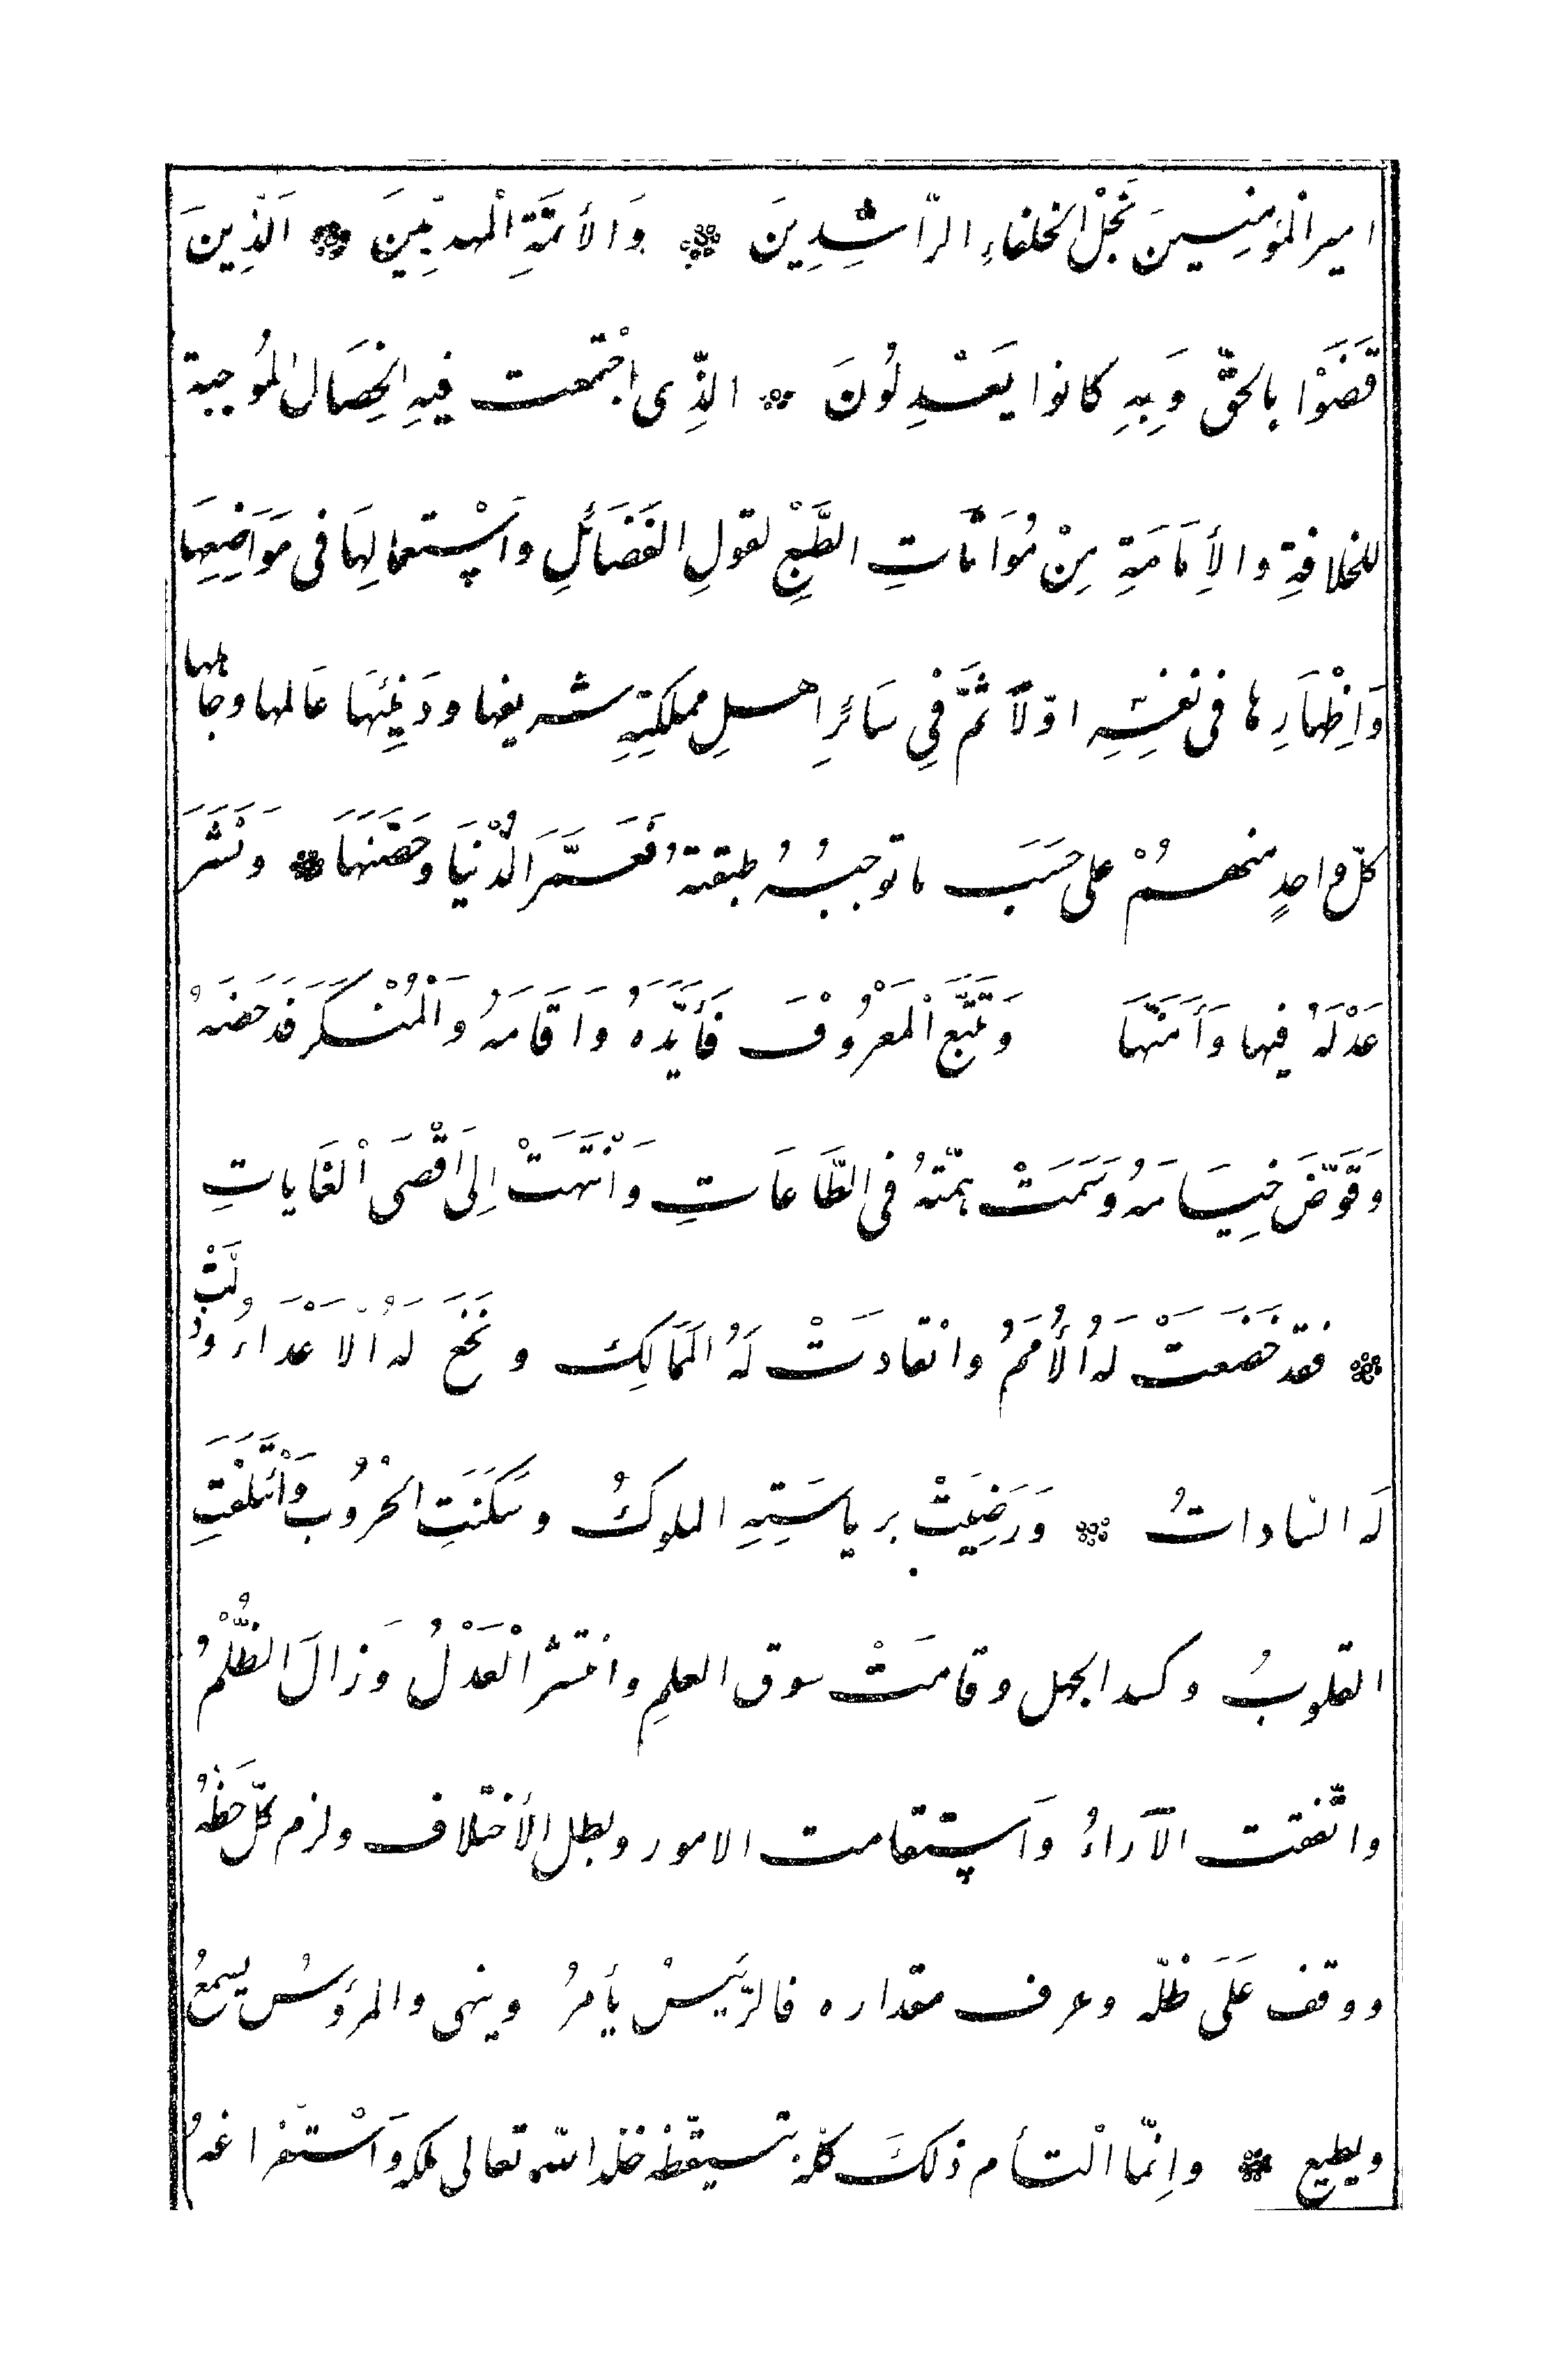 امير المُؤمِنِيينَ نَجْلِ الخلفاءِ الرّاشِدِينَ ۞ وَالأئمَّةِ المْهدِيّينَ ۞ الَّذِينَ
قَضَوْا بِالحَقّ وَبِهِ كانوا يَعْدِلُونَ ۞ الذّى اجْتمعت فيهِ الخِصَال المُوجبة
للخلافةِ والأِمَامَةِ مِنْ مُوَاتَاتِ الطَّبْعِ لقولِ الفَضَائلِ واَسْتعمالِهَا فى مَوَاضِعِهَا
وَاِظْهَارِها فى نفسِهِ اوّلاً ثمَّ فِي سَائرِ اهلِ مملكتِهِ شريفها ودَنِيئهَا عَالمها وجَاهلها
كلّ واحدٍ منهمُ على حَسَبَ ماتوجبُهُ طبقتهُ فَعَمَّرَ الدُّنْيَا وحَصَّنهَا ۞ وَنَشَرَ
عَدْلَهُ فيها وَأَمَّنَهَا وَتَتَبَّعَ اْلمَعْرُوْفَ فَأَيَّدَهُ وَاَقَامَهُ وَاْلمُنْكَرَ فَدَحَضَهُ
وَقَوّضَ خِيَامَهُ وَسَمَتْ هِمّتهُ فى الطَّاعَاتِ وَاْنتَهَتْ اِلىَ اَقْصَى اْلغَاياتِ
۞ فقد خَضَعَتْ لهَ الأُمَمُ وانْقادَتْ لَهُ الَممَالِك ونَخَعَ لهَُ الاَعْدَاءُ وذَلّتْ
لَه السّاداتُ ۞ وَرَضِيَتْ بِرياسَتِهِ الملوكُ وسَكَنَتِ الحْرُوُب وَاْئتَلَفَتِ
القلوبُ وكسد الجهل وقامَتْ سوق العلمِ وانتشر اْلعَدْلُ وَزالَ الظُّلْمُ
واتّفقت الآراءُ واَستقامت الامور وبطل الأختلاف ولزم كلّ حَظّهُ
ووقف عَلَى ظلّه وعرف مقداره فالرّئيسُ يأمرُ وينهى والمرؤسُ يسمعُ
ويطيع ۞ واِنمّا الْتأم ذلكَ كلّه بتيقّظه خلّد الله تعالى ملكه واَسْتفراغهُ